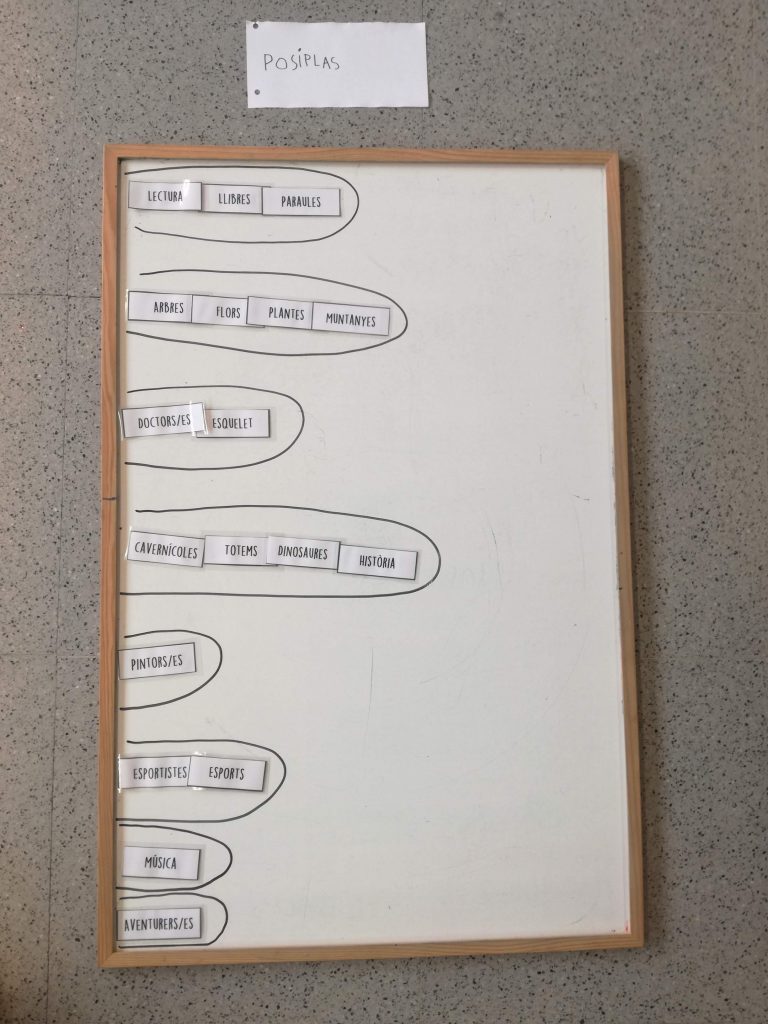 POSIPLAS
LECTURA LLIBRES PARAULES
ARBRES FLORS PLANTES MUNTANYES
DOCTORS/ES ESQUELET
CAVERNÍCOLES TOTEMS DINOSAURES HISTÒRIA
PINTORS/ES
ESPORTISTES ESPORTS
MÚSICA
AVENTURERS/ES